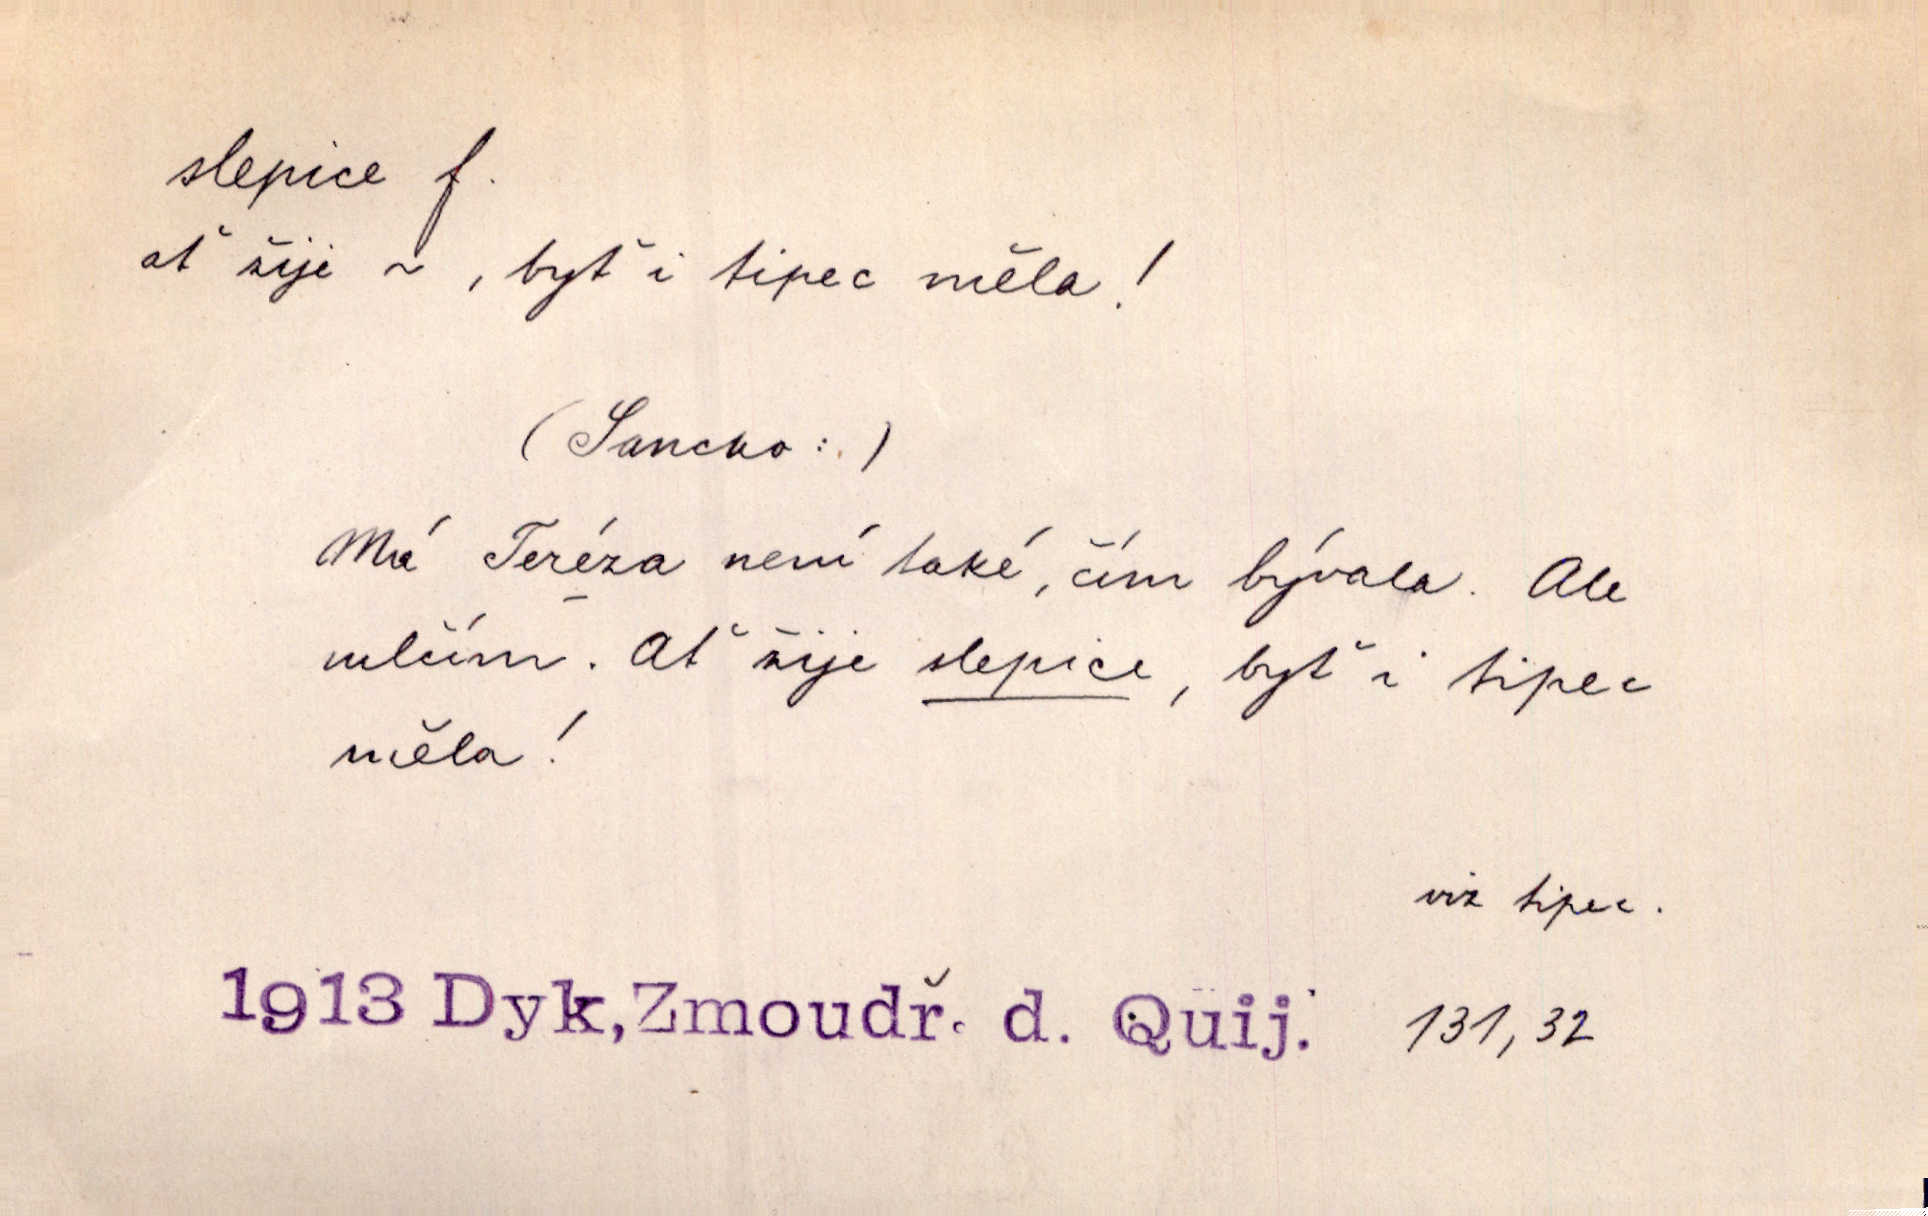 slepice f.
ať žije ~, byť i tipec měla!
(Sancho:)
Má Teréza není také, čím bývala. Ale
mlčím. Ať žije slepice, byť i tipec
měla!
viz tipec.
1913 Dyk, Zmoudř. d. Quij. 131, 32